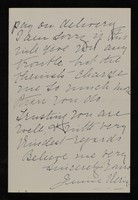 pay on delivery
I am sorry if this
will give you any
trouble, but the
chemists charge
me so much more
than you do.
Trusting you are
well & with very
kindest regards
Believe me very
Sincerely yours
Jennie